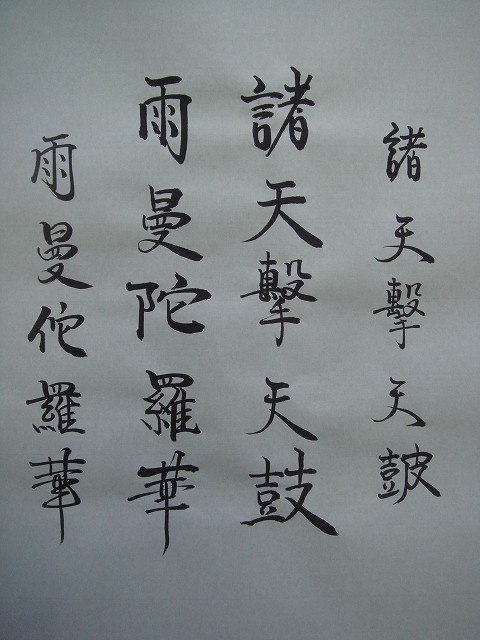 諸天擊天皷
諸天擊天鼓
雨曼陀羅華
雨曼佗羅華